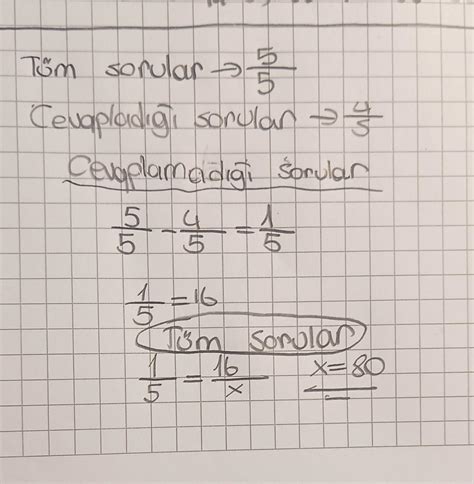 Tüm sorular → 5/5
Cevapladığı sorular → 4/5
Cevaplamadığı sorular
5/5 - 4/5 = 1/5
1/5 = 16
Tüm sorular
1/5 = 16/x x = 80